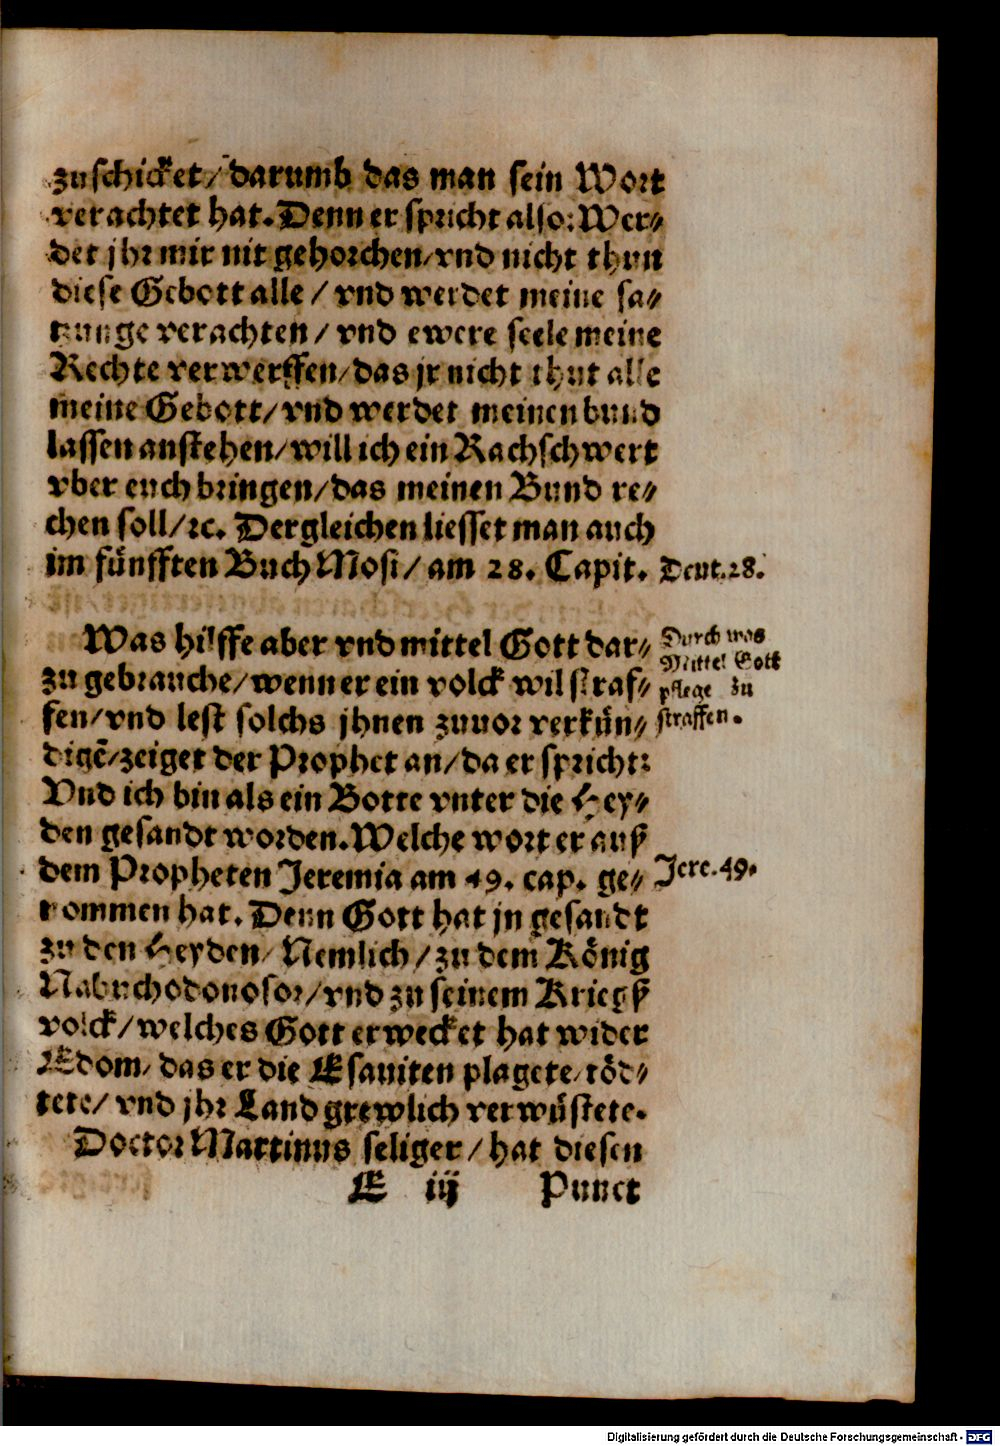 zuschicket / darumb das man sein Wort
verachtet hat. Denn er spricht also: Wer⸗
det jhr mir nit gehorchen / vnd nicht thun
diese Gebott alle / vnd werdet meine sa⸗
tzunge verachten / vnd ewere seele meine
Rechte verwerffen / das jr nicht thut alle
meine Gebott / vnd werdet meinen bund
lassen anstehen / will ich ein Rachschwert
vber euch bringen / das meinen Bund re⸗
chen soll / ꝛc. Dergleichen liesset man auch
im fünfften Buch Mosi / am 28. Capit.
Deut. 28.
Was hilffe aber vnd mittel Gott dar⸗
zu gebrauche / wenn er ein volck wil straf⸗
fen / vnd lest solchs jhnen zuuor verkün⸗
digē / zeiget der Prophet an / da er spricht:
Vnd ich bin als ein Botte vnter die Hey⸗
den gesandt worden. Welche wort er auß
dem Propheten Jeremia am 49. cap. ge⸗
nommen hat. Denn Gott hat jn gesandt
zu den Heyden / Nemlich / zu dem König
Nabuchodonosor / vnd zu seinem Kriegß
volck / welches Gott erwecket hat wider
Edom / das er die Esauiten plagete / töd⸗
tete / vnd jhr Land grewlich verwüstete.
Durch was
Mittel Gott
pflege zu
straffen.
Jere. 49.
Doctor Martinus seliger / hat diesen
E iij Punct
Digitalisierung gefördert durch die Deutsche Forschungsgemeinschaft - DFG